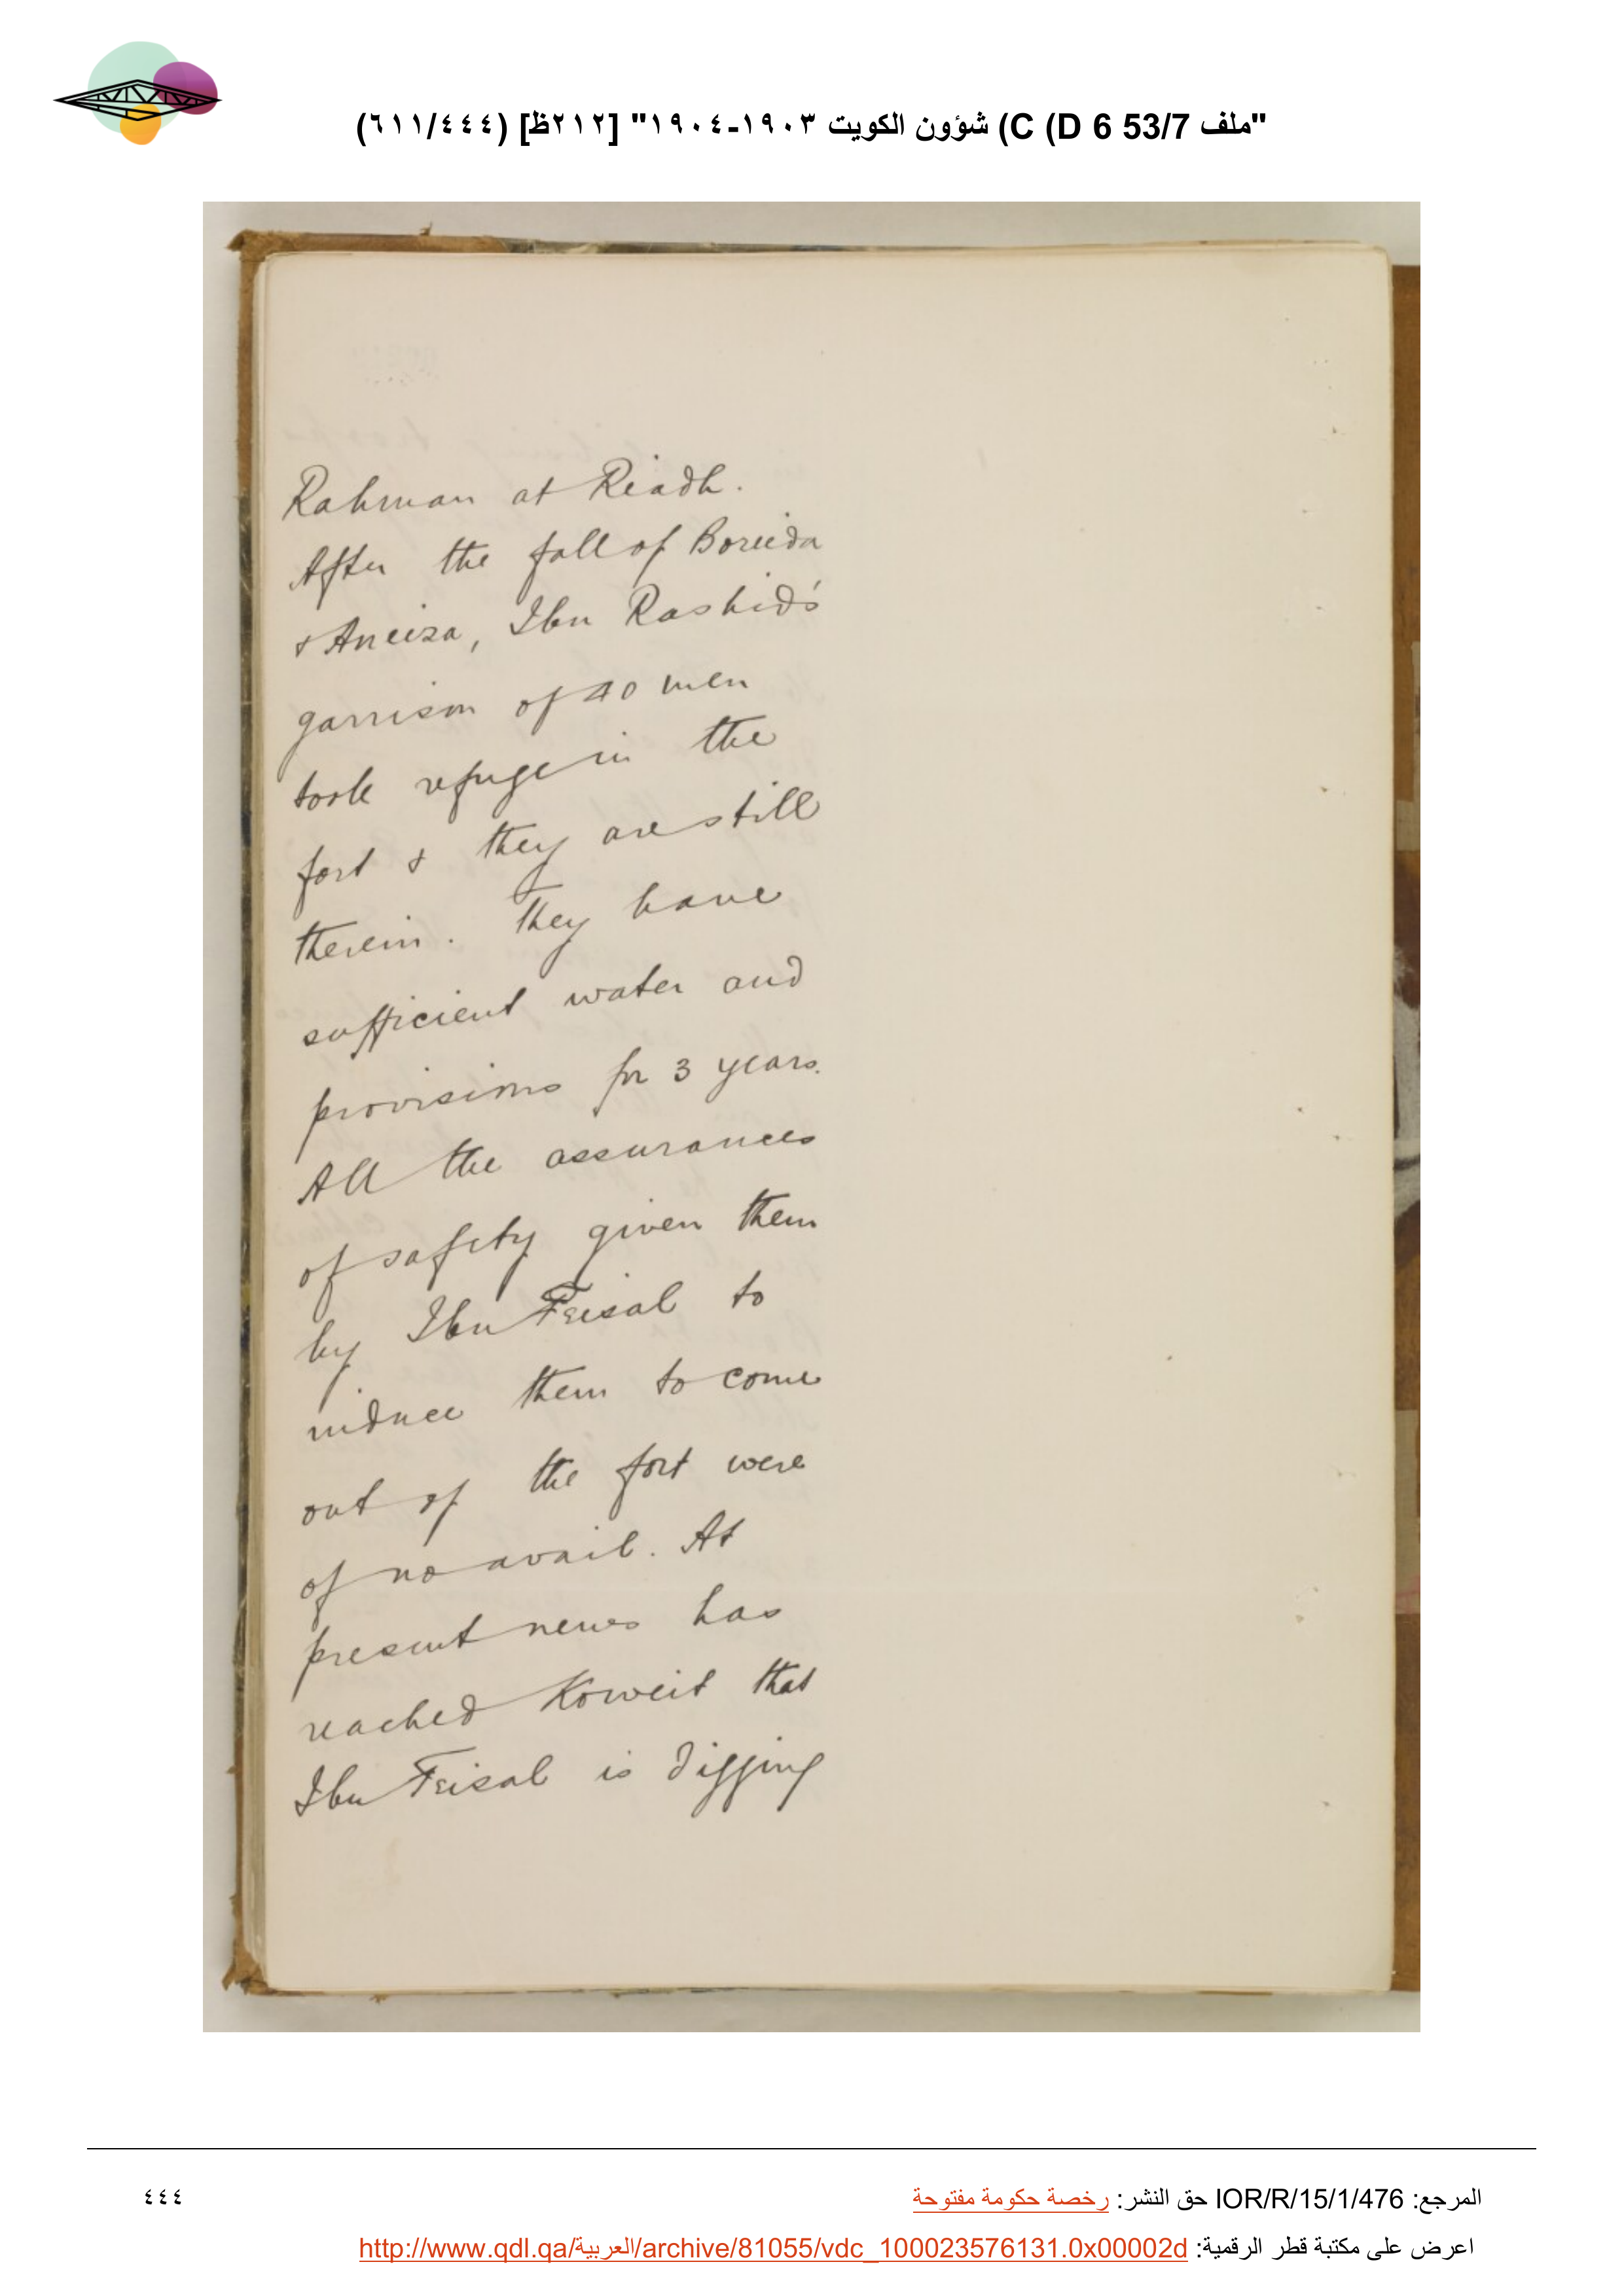 "ملف 53/7 C (D 6) شؤون الكويت ١٩٠٣-١٩٠٤" [٢١٢ظ] (٦١١/٤٤٤)
Rahman at Riadh.
After the fall of Boreida
& Aneiza, Ibn Rashid's
garrison of 40 men
took refuge in the
fort & they are still
therein. They have
sufficient water and
provisions for 3 years.
All the assurances
of safety given them
by Ibn Feisal to
induce them to come
out of the fort were
of no avail. At
present news has
reached Koweit that
Ibn Feisal is digging
المرجع: IOR/R/15/1/476 حق النشر: رخصة حكومة مفتوحة
٤٤٤
اعرض على مكتبة قطر الرقمية: http://www.qdl.qa/العربية/archive/81055/vdc_100023576131.0x00002d